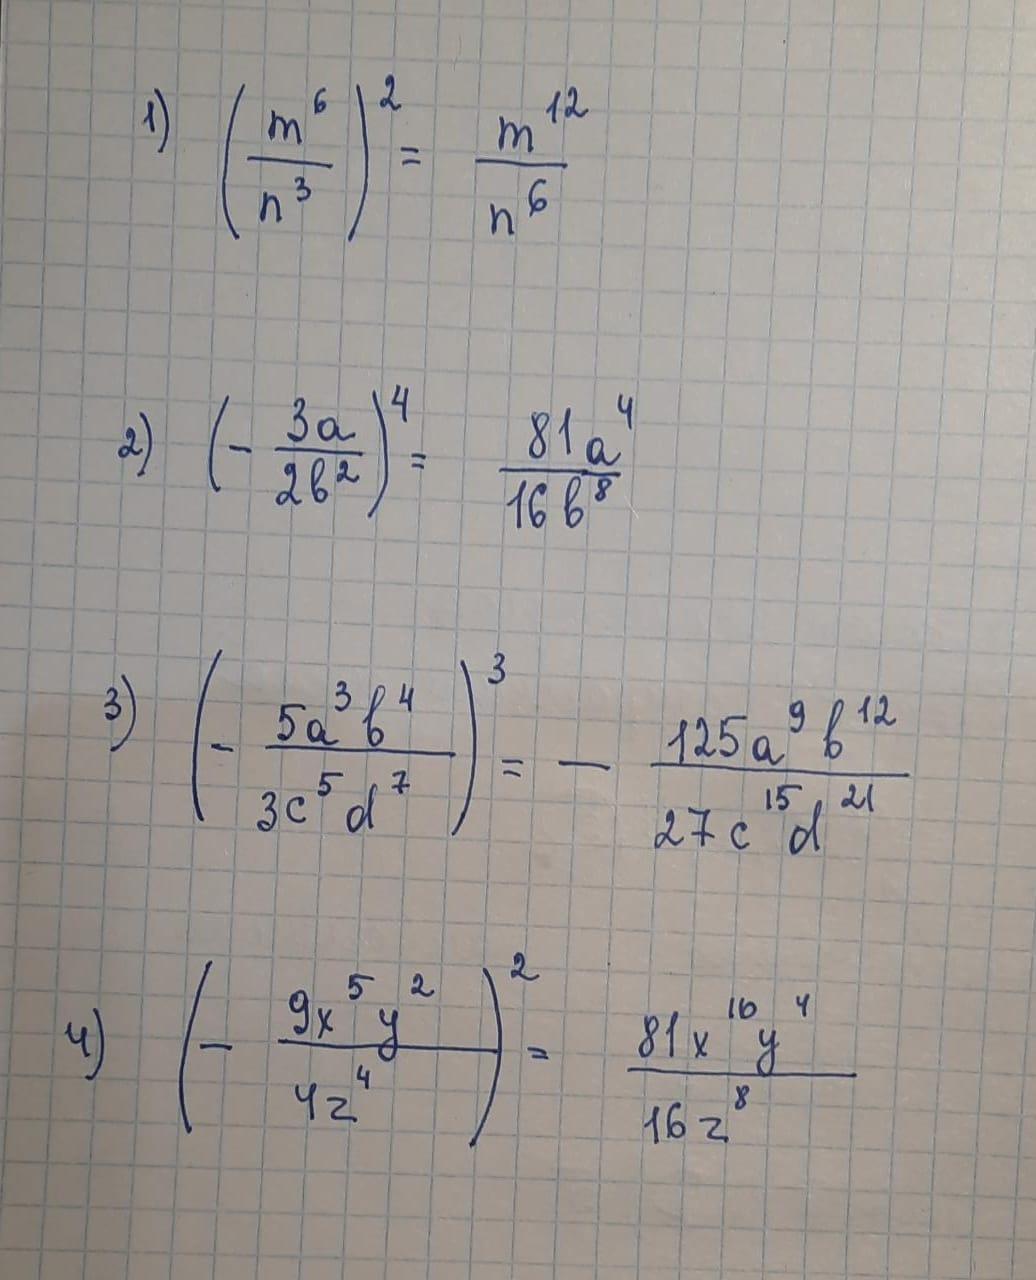 1) (m⁶/n³)² = m¹²/n⁶
2) (- 3a/2b²)⁴ = 81a⁴/16b⁸
3) (- 5a³b⁴/3c⁵d⁷)³ = - 125a⁹b¹²/27c¹⁵d²¹
4) (- 9x⁵y²/4z⁴)² = 81x¹⁰y⁴/16z⁸